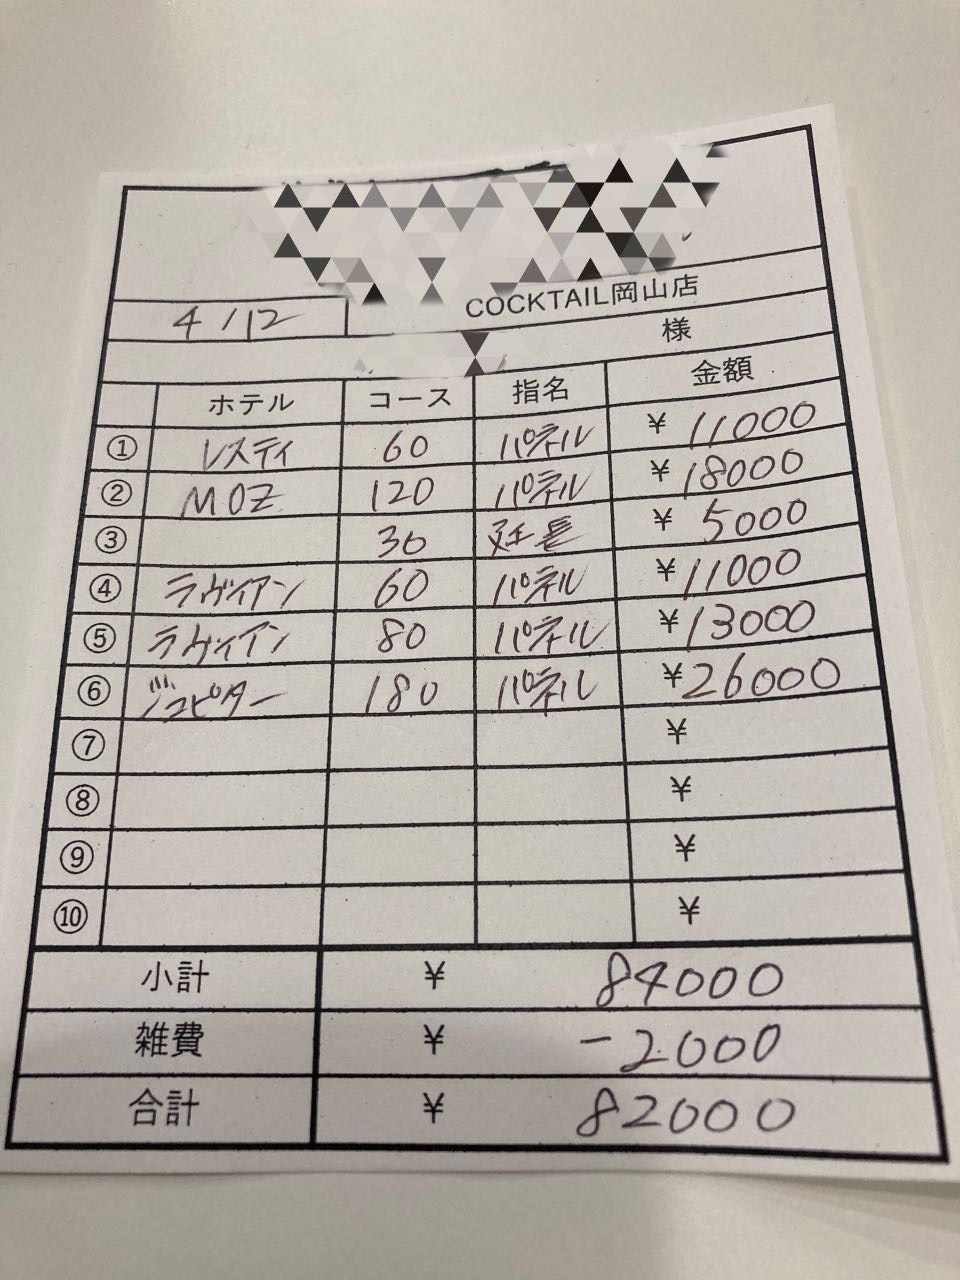 COCKTAIL岡山店
4/12
様
ホテル コース 指名 金額
① レスティ 60 パネル ¥ 11000
② MOZ 120 パネル ¥ 18000
③ 30 延長 ¥ 5000
④ ラヴィアン 60 パネル ¥ 11000
⑤ ラヴィアン 80 パネル ¥ 13000
⑥ ジュピター 180 パネル ¥ 26000
⑦ ¥
⑧ ¥
⑨ ¥
⑩ ¥
小計 ¥ 84000
雑費 ¥ -2000
合計 ¥ 82000